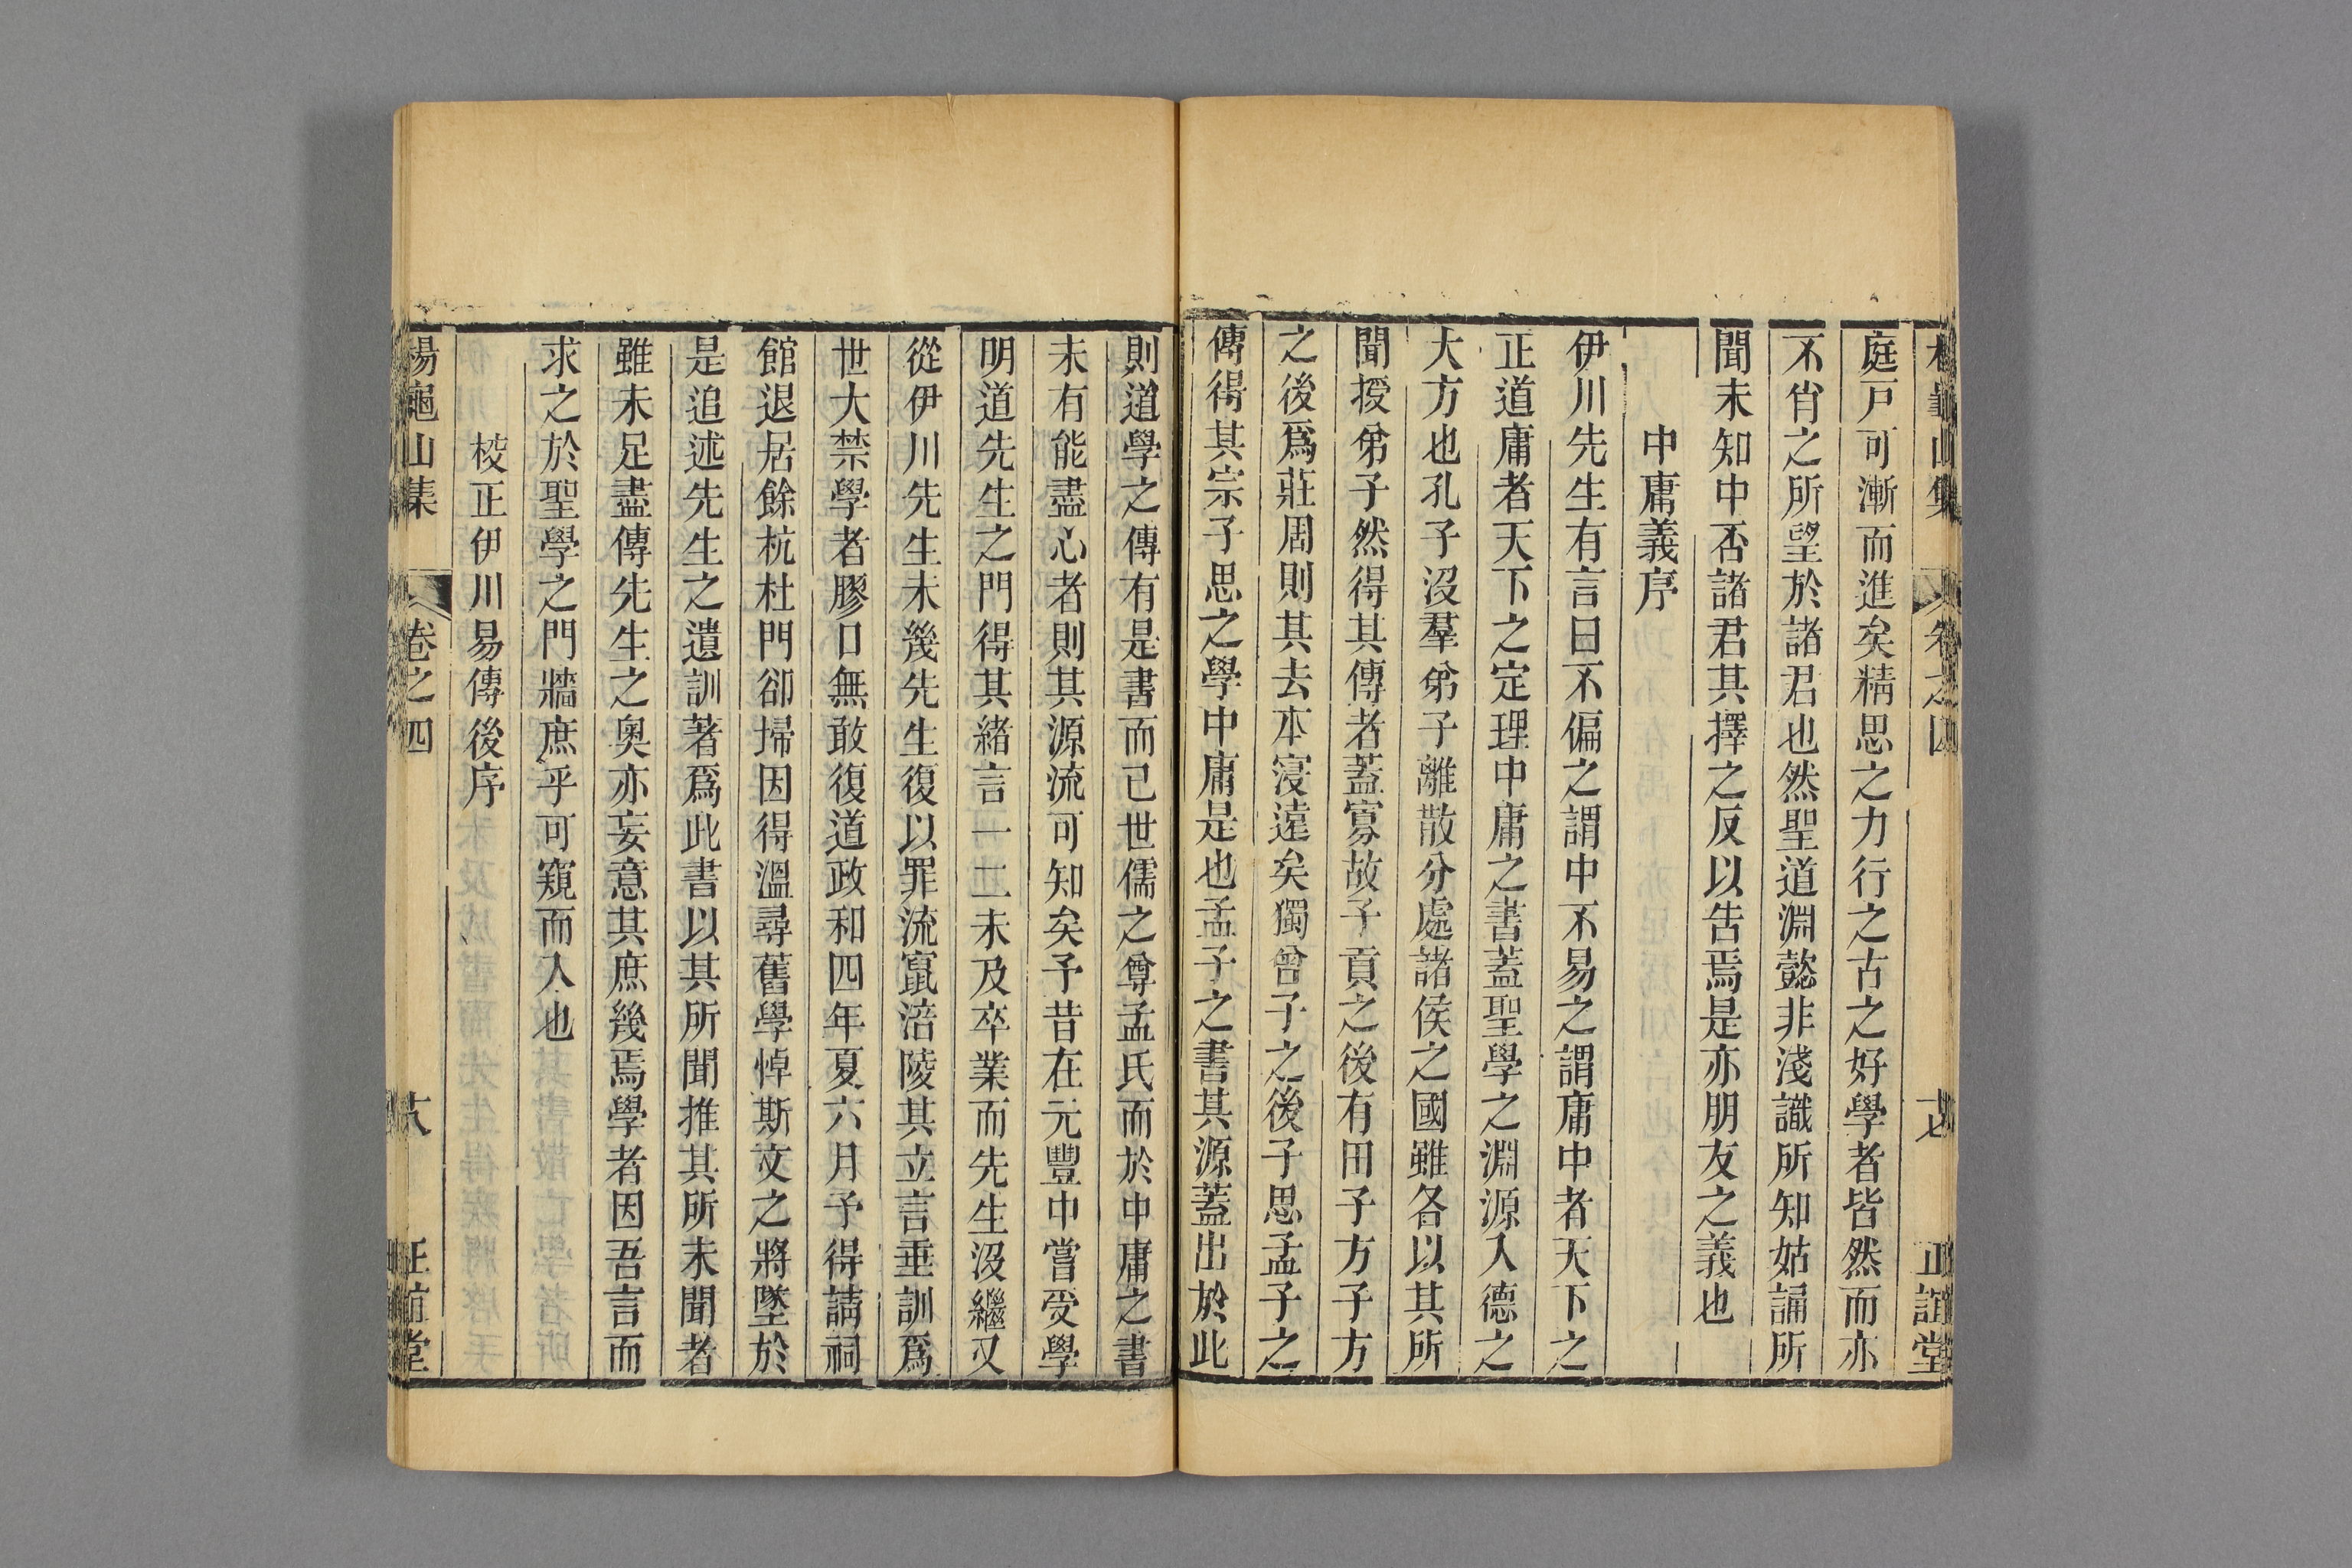 楊龜山集 卷之四 十七 正誼堂
庭戸可漸而進矣精思之力行之古之好學者皆然而亦
不肖之所望於諸君也然聖道淵懿非淺識所知姑誦所
聞未知中否諸君其擇之反以告焉是亦朋友之義也
中庸義序
伊川先生有言曰不偏之謂中不易之謂庸中者天下之
正道庸者天下之定理中庸之書蓋聖學之淵源入德之
大方也孔子沒羣弟子離散分處諸侯之國雖各以其所
聞授弟子然得其傳者蓋寡故子貢之後有田子方子方
之後爲莊周則其去本寖遠矣獨曾子之後子思孟子之
傳得其宗子思之學中庸是也孟子之書其源蓋出於此
則道學之傳有是書而已世儒之尊孟氏而於中庸之書
未有能盡心者則其源流可知矣予昔在元豐中嘗受學
明道先生之門得其緒言一二未及卒業而先生沒繼又
從伊川先生未幾先生復以罪流竄涪陵其立言垂訓爲
世大禁學者膠口無敢復道政和四年夏六月予得請祠
館退居餘杭杜門卻掃因得溫尋舊學悼斯文之將墜於
是追述先生之遺訓著爲此書以其所聞推其所未聞者
雖未足盡傳先生之奥亦妄意其庶幾焉學者因吾言而
求之於聖學之門牆庶乎可窺而入也
棱正伊川易傳後序
楊龜山集 卷之四 十八 正誼堂